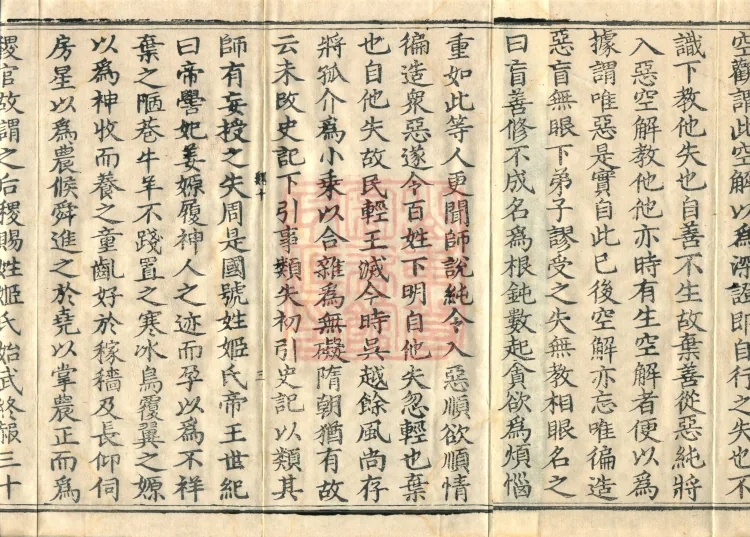 空觀謂此空解以為深證即自行之失也不
識下教他失也自善不生故棄善從惡純將
入惡空解教他他亦時有生空解者便以為
據謂唯惡是實自此已後空解亦忘唯徧造
惡盲無眼下弟子謬受之失無教相眼名之
曰盲善修不成名為根鈍數起貪欲為煩惱
重如此等人更聞師說純令入惡順欲順情
徧造衆惡遂令百姓下明自他失忽輕也棄
也自他失故民輕王滅今時吳越餘風尚存
將狐介為小乘以合雜為無礙隋朝猶有故
云未改史記下引事類失初引史記以類其
師有妄授之失周是國號姓姬氏帝王世紀
曰帝嚳妃姜嫄履神人之迹而孕以為不祥
棄之陋巷牛羊不踐置之寒冰鳥覆翼之嫄
以為神收而養之童齓好於稼穡及長仰伺
房星以為農候舜進之於堯以掌農正而為
稷官故謂之后稷賜姓姬氏始武終赧三十